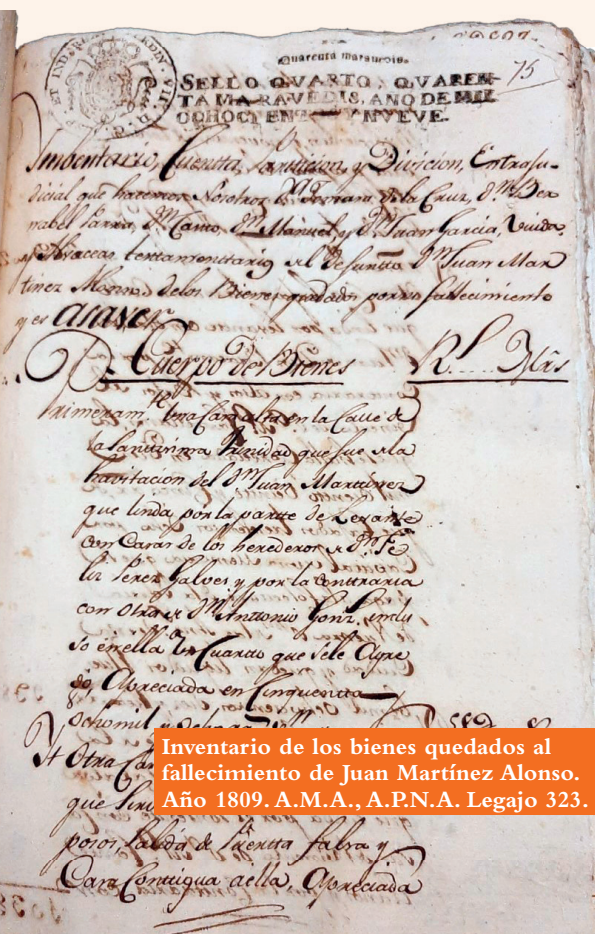 Quarenta maravedis.
75
SELLO QVARTO, QVAREN-
TA MARAVEDIS, AÑO DE MIL
OCHOCIENTOS Y NVEVE.
Imbentario, Cuenta, Partticion, y Divicion, Extraju-
dicial que hacemos Nosotros de la Cruz, Dn. Ber
nabel Parra, Dn. Manuel y Dn. Juan Garcia, Viuda,
y Alvaceas testamenttarios del Defuntto Dn. Juan Mar
tinez Alonso, delos Bienes quedados por su fallecimiento
y es asaver
Cuerpo de Bienes Rs. Mrs
Primeramte. Una Casa alta en la Calle de
la Santtisima Trinidad que fue dela
havitacion del Dn. Juan Martinez
que linda por la partte de Levante
con Casas de los herederos de Dn. Fe
liz Perez Galves y por la conttraria
con otra de Dn. Anttonio Gonz. inclu
so en ella un Cuartto que sele Agre
gó, Apreciada en Cinquentta y
ochomil
Yt. Otra Ca
que
posos, Salida de Puertta falsa y
Casa Conttigua aella, Apreciada
Inventario de los bienes quedados al
fallecimiento de Juan Martínez Alonso.
Año 1809. A.M.A., A.P.N.A. Legajo 323.